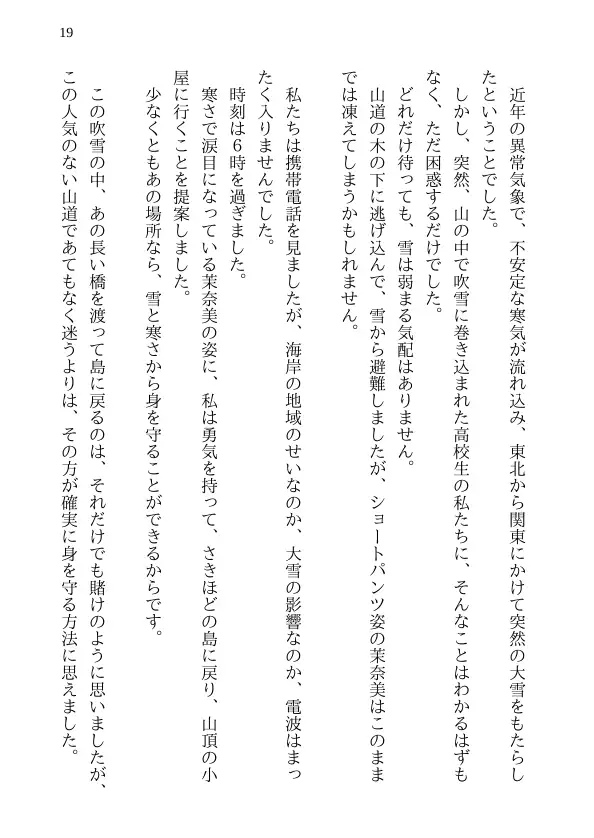 19
近年の異常気象で、不安定な寒気が流れ込み、東北から関東にかけて突然の大雪をもたらし
たということでした。
しかし、突然、山の中で吹雪に巻き込まれた高校生の私たちに、そんなことはわかるはずも
なく、ただ困惑するだけでした。
どれだけ待っても、雪は弱まる気配はありません。
山道の木の下に逃げ込んで、雪から避難しましたが、ショートパンツ姿の茉奈美はこのまま
では凍えてしまうかもしれません。
私たちは携帯電話を見ましたが、海岸の地域のせいなのか、大雪の影響なのか、電波はまっ
たく入りませんでした。
時刻は６時を過ぎました。
寒さで涙目になっている茉奈美の姿に、私は勇気を持って、さきほどの島に戻り、山頂の小
屋に行くことを提案しました。
少なくともあの場所なら、雪と寒さから身を守ることができるからです。
この吹雪の中、あの長い橋を渡って島に戻るのは、それだけでも賭けのように思いましたが、
この人気のない山道であてもなく迷うよりは、その方が確実に身を守る方法に思えました。